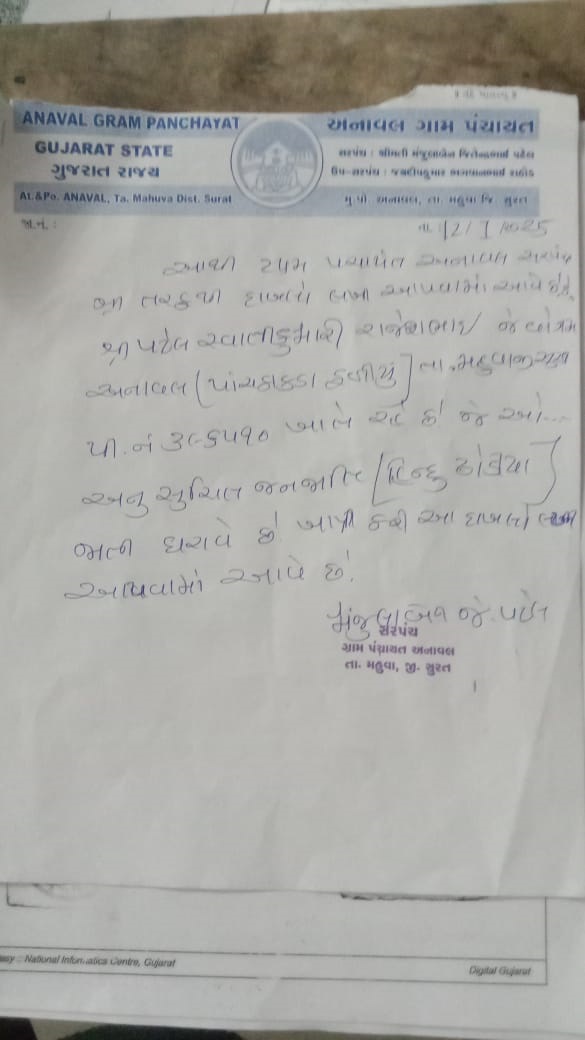 ANAVAL GRAM PANCHAYAT
GUJARAT STATE
ગુજરાત રાજ્ય
At.&Po. ANAVAL, Ta. Mahuva Dist. Surat
અનાવલ ગ્રામ પંચાયત
સરપંચ : શ્રીમતી મંજુલાબેન જિતેન્દ્રભાઈ પટેલ
ઉપ-સરપંચ :
મુ.પો. અનાવલ, તા. મહુવા જિ. સુરત
જા.નં. :
તા. 2025
આથી ગ્રામ પંચાયત અનાવલ સરપંચ
શ્રી તરફથી દાખલો લખી આપવામાં આવે છે કે
શ્રી પટેલ સ્વાતીકુમારી રાજેશભાઇ જે
અનાવલ તા. મહુવા
પી.નં ૩૯૬૫૧૦ ખાતે રહે છે જે
અનુ સુચિત જનજાતિ [હિન્દુ ઢોડીયા]
જાતી ધરાવે છે. ખાત્રી કરી આ દાખલો
આપવામાં આવે છે.
મંજુલાબેન જે. પટેલ
સરપંચ
ગ્રામ પંચાયત અનાવલ
તા. મહુવા, જી. સુરત
National Informatics Centre, Gujarat
Digital Gujarat